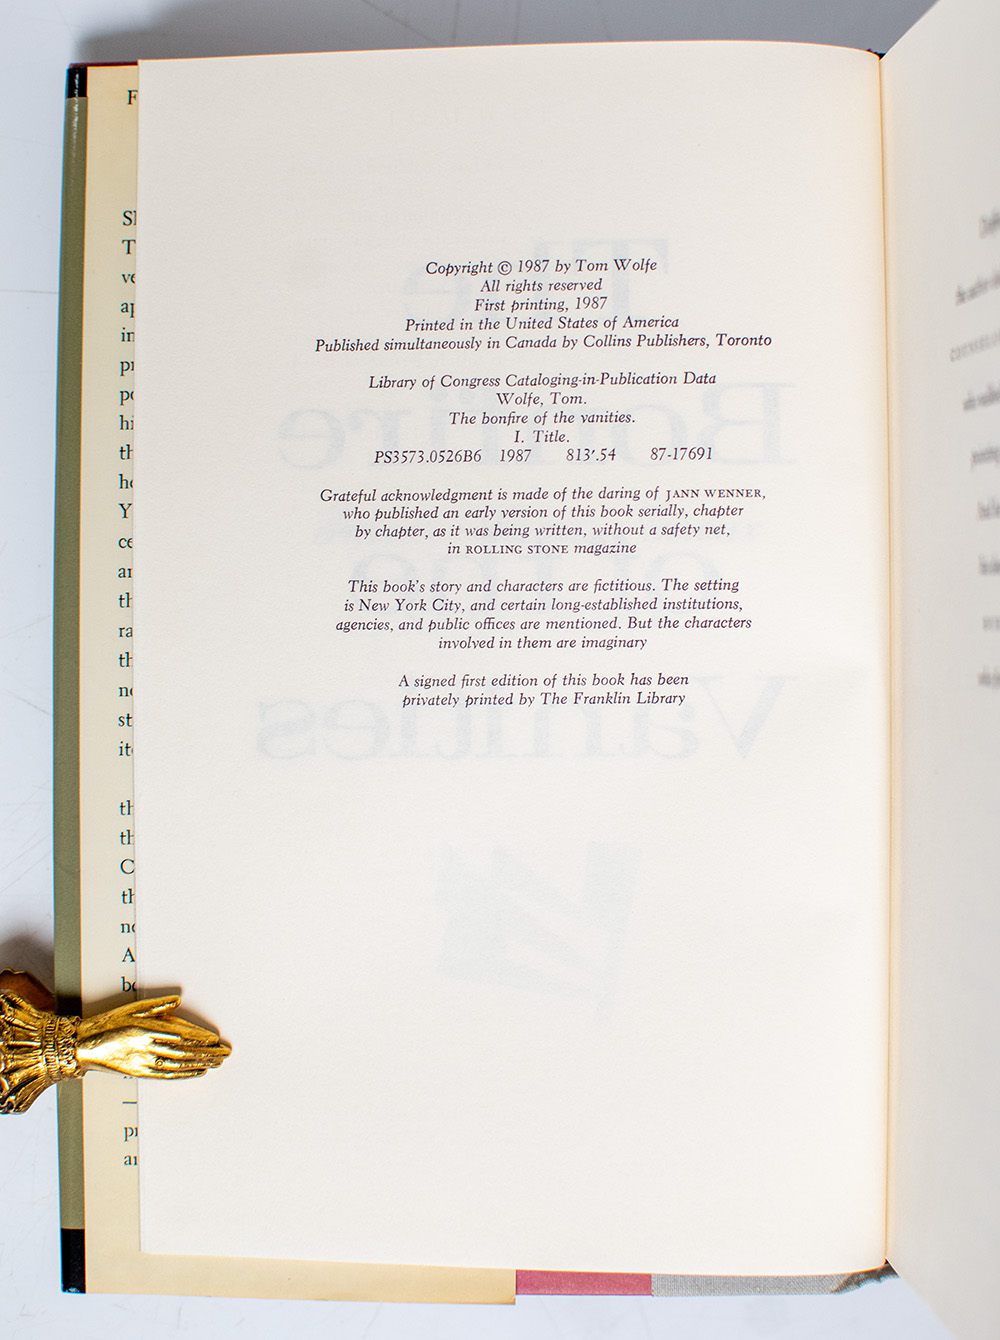 Copyright © 1987 by Tom Wolfe
All rights reserved
First printing, 1987
Printed in the United States of America
Published simultaneously in Canada by Collins Publishers, Toronto
Library of Congress Cataloging-in-Publication Data
Wolfe, Tom.
The bonfire of the vanities.
I. Title.
PS3573.0526B6 1987 813'.54 87-17691
Grateful acknowledgment is made of the daring of JANN WENNER,
who published an early version of this book serially, chapter
by chapter, as it was being written, without a safety net,
in ROLLING STONE magazine
This book's story and characters are fictitious. The setting
is New York City, and certain long-established institutions,
agencies, and public offices are mentioned. But the characters
involved in them are imaginary
A signed first edition of this book has been
privately printed by The Franklin Library